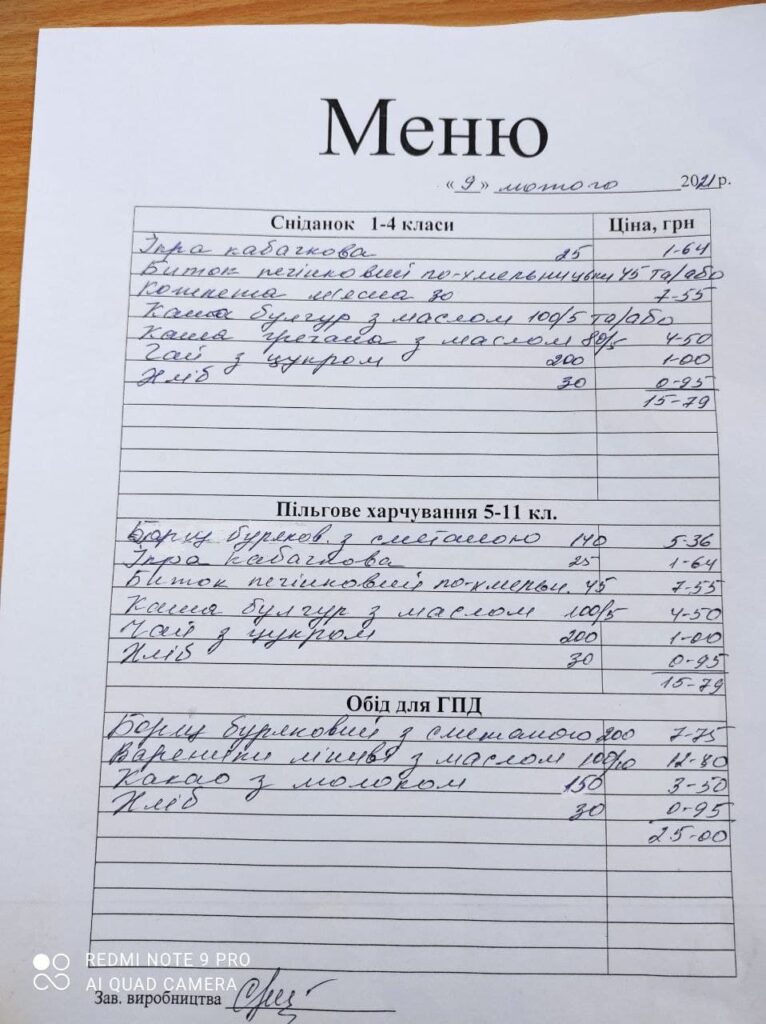 Меню
« 9 » лютого 2021 р.
Сніданок 1-4 класи Ціна, грн
Ікра кабачкова 25 1-64
Биток печінковий по-хмельницьки 45 та/або
Котлета м'ясна 30 7-55
Каша булгур з маслом 100/5 та/або
Каша гречана з маслом 80/5 4-50
Чай з цукром 200 1-00
Хліб 30 0-95
15-79
Пільгове харчування 5-11 кл.
Борщ буряков. з сметаною 140 5-36
Ікра кабачкова 25 1-64
Биток печінковий по-хмельн. 45 7-55
Каша булгур з маслом 100/5 4-50
Чай з цукром 200 1-00
Хліб 30 0-95
15-79
Обід для ГПД
Борщ буряковий з сметаною 200 7-75
Вареники ліниві з маслом 100/10 12-80
Какао з молоком 150 3-50
Хліб 30 0-95
25-00
REDMI NOTE 9 PRO
AI QUAD CAMERA
Зав. виробництва